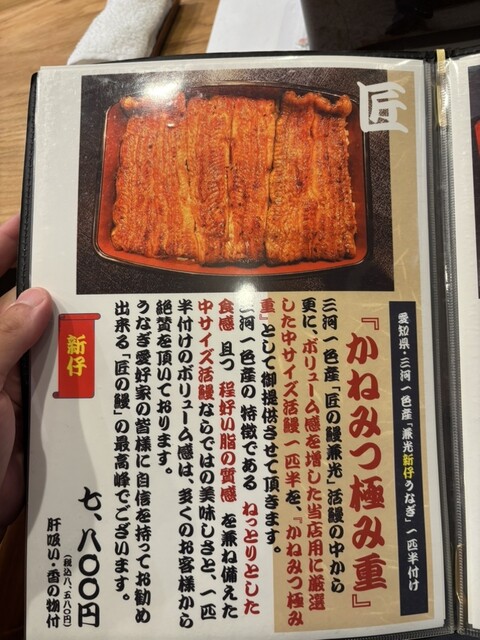 匠
愛知県・三河一色産「兼光新仔うなぎ」一匹半付け
『かねみつ極み重』
三河一色産「匠の鰻兼光」活鰻の中から
更に、ボリューム感を増した当店用に厳選
した中サイズ活鰻一匹半を、『かねみつ極み
重』として御提供させて頂きます。
三河一色産の特徴である ねっとりとした
食感 且つ 程好い脂の質感 を兼ね備えた
中サイズ活鰻ならではの美味しさと、一匹
半付けのボリューム感は、多くのお客様から
絶賛を頂いております。
うなぎ愛好家の皆様に自信を持ってお勧め
出来る「匠の鰻」の最高峰でございます。
新仔
七、八〇〇円
(税込八、五八〇円)
肝吸い・香の物付